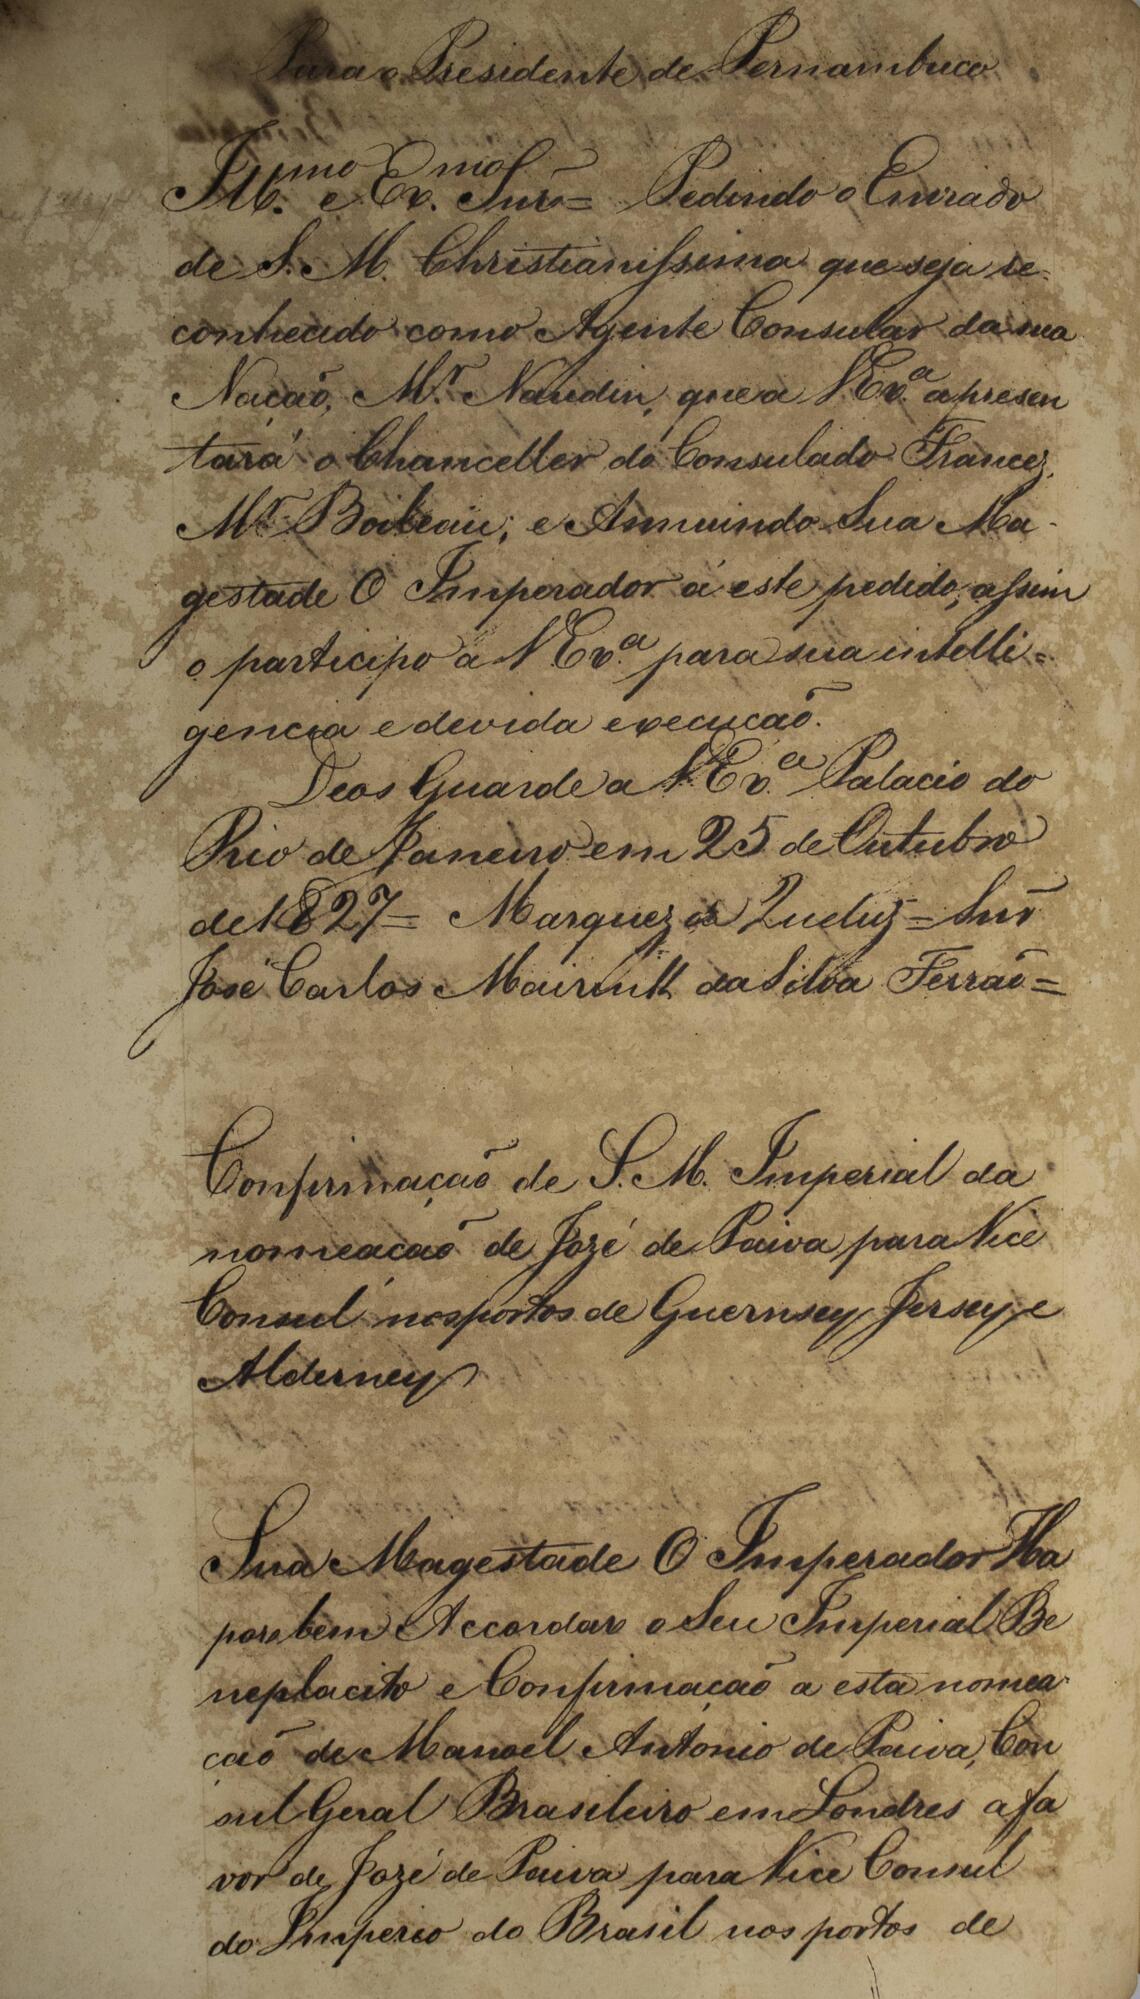 Para o Presidente de Pernambuco
Ill.mo e Ex.mo Snr= Pedindo o Enviado
de S. M. Christianissima que seja re-
conhecido como Agente Consular da sua
Nação, M.r Naudin, que a V Ex.a apresen
tará o Chanceller do Consulado Francez,
M.r Boileau; e Annuindo Sua Ma-
gestade O Imperador á este pedido, assim
o participo a V Ex.a para sua intelli=
gencia e devida execução.
Deos Guarde a V Ex.a Palacio do
Rio de Janeiro em 25 de Outubro
de 1827= Marquez de Queluz= Snr
José Carlos Mairink da Silva Ferrão=
Confirmação de S. M. Imperial da
nomeação de Jozé de Paiva para Vice
Consul nos portos de Guernsey, Jersey, e
Alderney
Sua Magestade O Imperador Ha
por bem Accordar o Seu Imperial Be
neplacito e Confirmação a esta nomea
ção de Manoel Antonio de Paiva, Con
sul Geral Brasileiro em Londres a fa
vor de Jozé de Paiva para Vice Consul
do Imperio do Brasil nos portos de